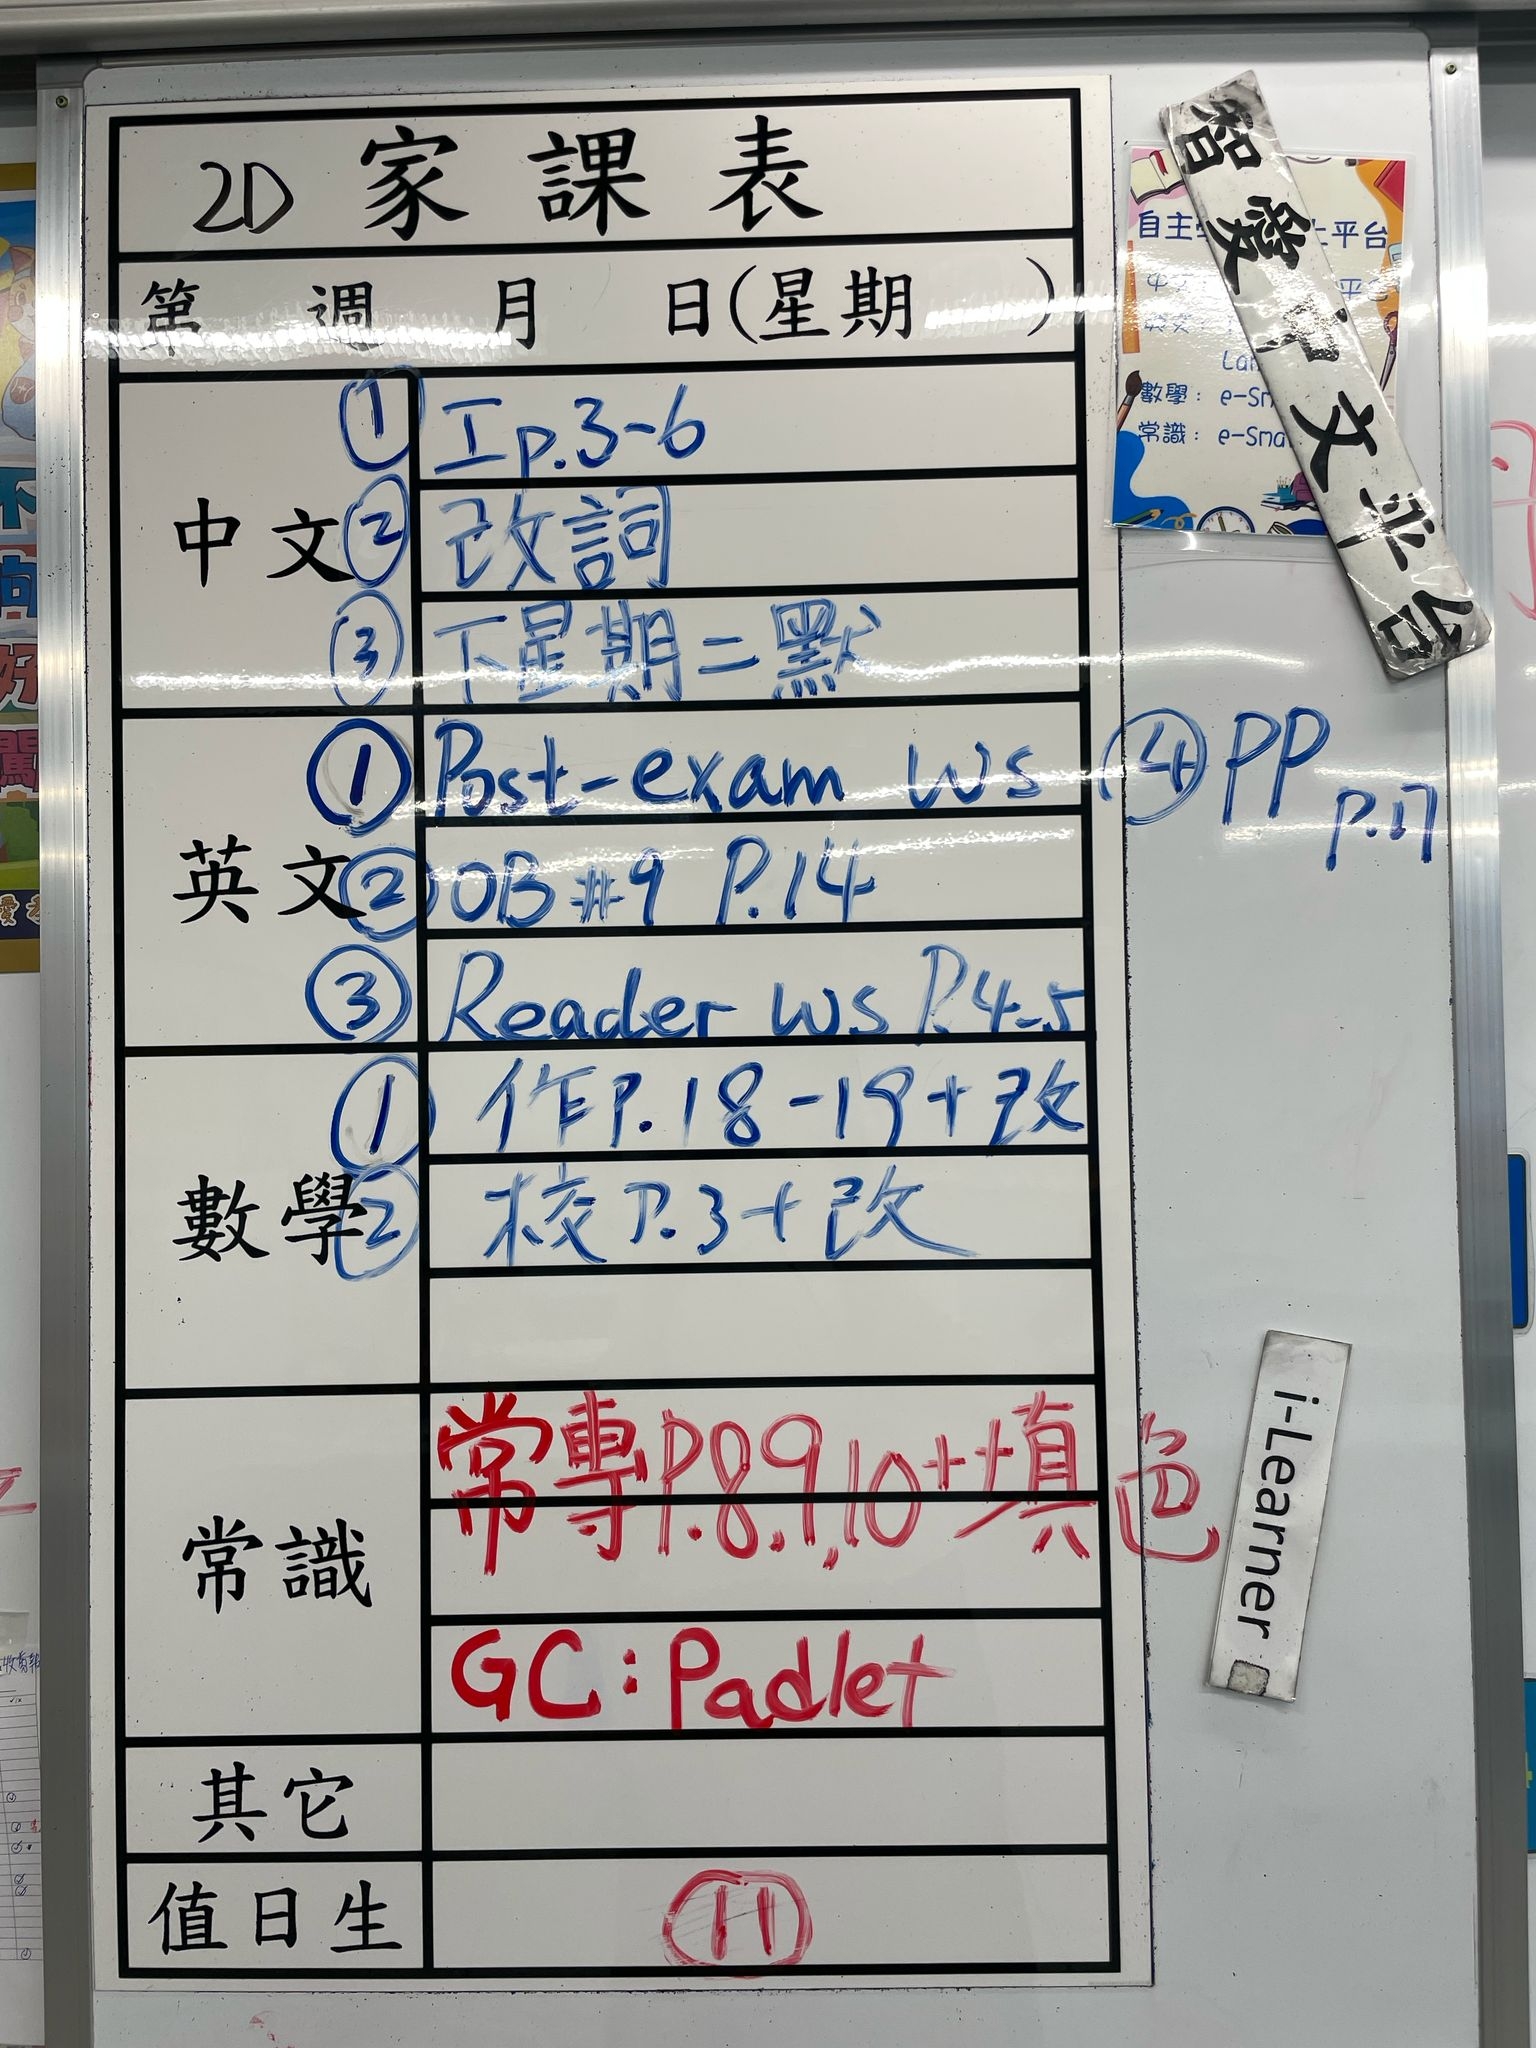 2D 家課表
第 週 月 日(星期 )
中文
① 工p.3-6
② 改詞
③ 下星期二默
英文
① Post-exam WS ④ PP P.17
② OB #9 P.14
③ Reader WS P.4-5
數學
① 作P.18-19+改
② 校P.3+改
常識
常專P.8,9,10++填色
GC:Padlet
其它
值日生
11
智愛中文平台
自主 平台
數學: e-Sm
常識: e-Sma
i-Learner